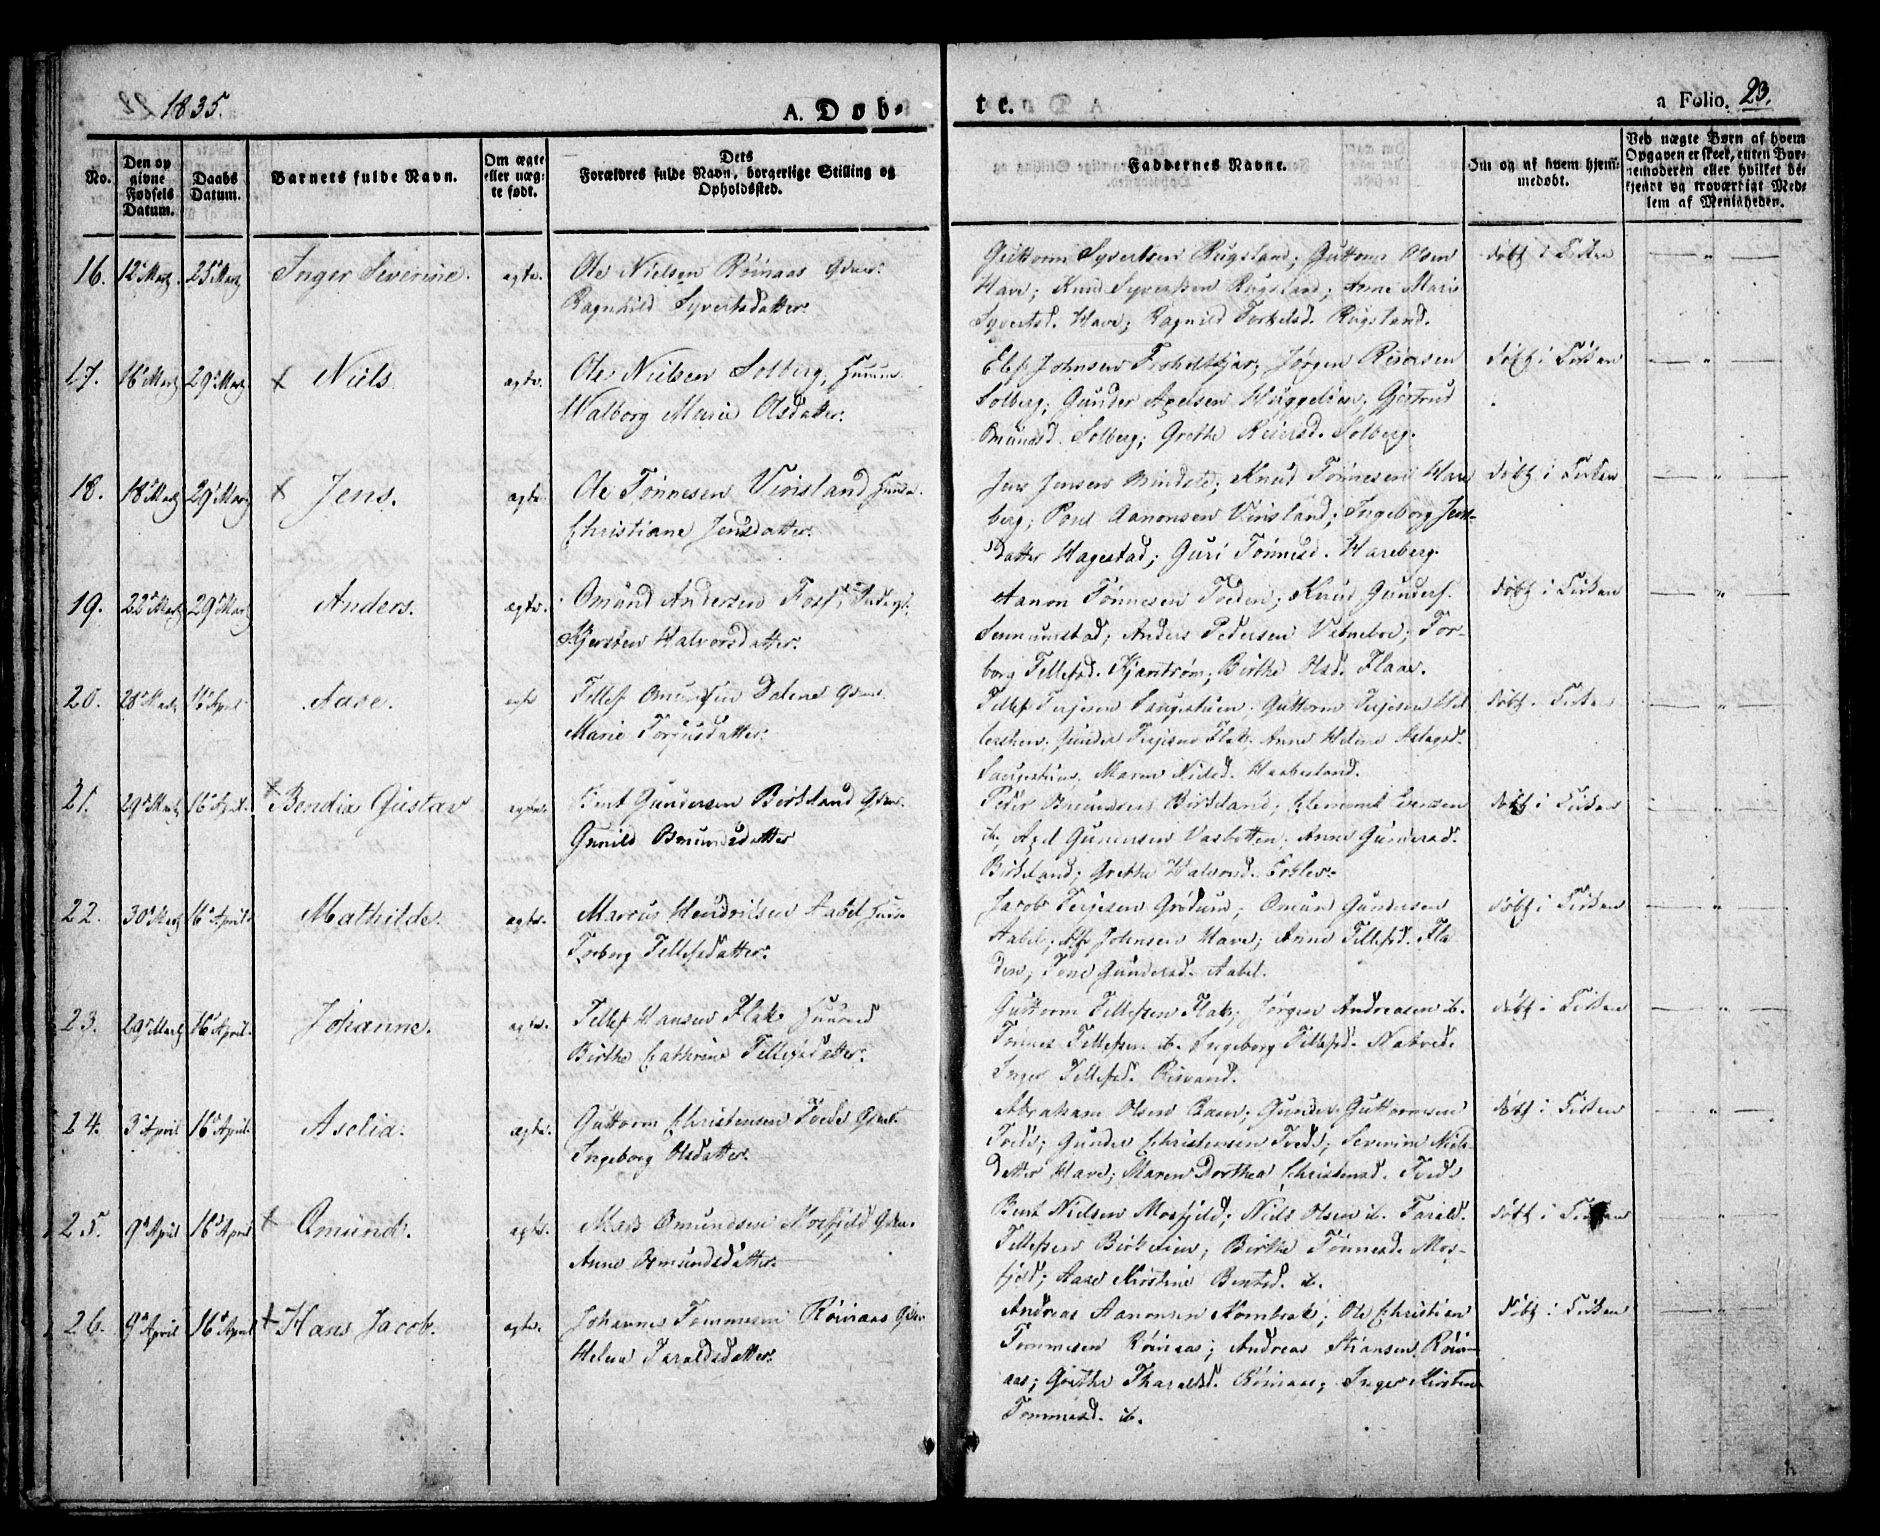 1835.
A. Døb-
te.
a Folio. 23.
No.
Den op
givne
Fødsels
Datum.
Daabs
Datum.
Barnets fulde Navn.
Om ægte
eller uæg-
te født.
Dets
Forældres fulde Navn, borgerlige Stilling og
Opholdssted.
Faddernes Navne.
Om og af hvem hjem-
medøbt.
Ved uægte Børn af hvem
Opgaven er skeet, enten Bar-
nemoderen eller hvilket be-
kjendt og troværdigt Med-
lem af Menigheden.
16. 12 Martz 25 Martz Inger Severine. ægte. Ole Nielsen Röinaas
Ragnhild Syvertsdatter.
Guttorm Syvertsen Rugsland; Guttorm Olsen
Have; Knud Syvertsen Rugsland; Anne Marie
Syvertsd. Have; Ragnild Torkelsd. Rugsland.
døbt i Kirken
17. 16 Martz 29 Martz + Niels ægte. Ole Nielsen Solberg,
Walborg Marie Olsdatter.
Elef Johnsen; Jørgen Reiersen
Solberg; Gunder Axelsen; Gjertrud
Omundsd. Solberg; Grethe Reiersd. Solberg.
døbt i Kirken
18. 18 Martz 29 Martz + Jens. ægte. Ole Tönnesen Virisland
Christiane Jensdatter.
Jens Jensen; Knud Tönnesen Hare
berg; Aanonsen Virisland; Ingeborg Jens-
datter Hagestad; Guri Tönnesd. Hareberg.
døbt i Kirken
19. 22 Martz 29 Martz Anders. ægte. Omund Andersen Foss,
Kjersten Halvorsdatter.
Aanon Tönnesen; Knud Gunders.
Anders Pedersen; Tor-
borg Tellefsd. Kjenström; Birthe Olsd. Flaae.
døbt i Kirken
20. 28 Martz 16 April Aase. Tellef Omundsen Dalene
Marie Torjusdatter.
Tellef Terjesen; Guttorm Terjesen
Gunder Terjesen Flak. Anne Helene Aslagsd.
Maren Nielsd. Haabesland.
døbt i Kirken
21. 29 Martz 16 April + Bendix Gustav ægte. Bent Gundersen Birkeland
Gunild Omundsdatter
Peder Omundsen Birkeland;
ib. Axel Gundersen Vasbotten. Anne Gundersd.
Birkeland; Grethe Halvorsd.
døbt i Kirken
22. 30 Martz 16 April Mathilde. ægte. Marcus Hendriksen Aabel
Torborg Tellefsdatter.
Jacob Terjesen; Omund Gundersen
Aabel; Johnsen Have; Anne Tellefsd. Fla-
den; Tone Gundersd. Aabel.
døbt i Kirken
23. 29 Martz 16 April. Johanne. ægte. Tellef Hansen Flak
Birthe Cathrine Tellefsdatter.
Guttorm Tellefsen Flak; Jørgen Andreasen ib.
Tönnes Tellefsen ib. Ingeborg Tellefsd.
Inger Tellefsd. Risvand.
døbt i Kirken
24. 3 April 16 April. Aselia. ægte. Guttorm Christensen Tvede
Ingeborg Olsdatter.
Abraham Olsen; Gunder Guttormsen
Tvede; Gunder Christensen Tvede; Severine Niels-
datter Have; Maren Dorthea Christensd. Tvede
døbt i Kirken
25. 9 April 16 April + Omund. ægte. Mads Omundsen Mosfjeld
Anne Osmundsdatter
Bent Nielsen Mosfjeld; Niels Olsen ib. Tarald
Tellefsen; Birthe Tönnesd. Mos-
fjeld; Aase Kirstine Bentsd. ib.
døbt i Kirken
26. 9 April 16 April + Hans Jacob. ægte. Johannes Tommesen Röinaas
Helene Taraldsdatter.
Andreas Aanonsen; Ole Christian
Tommesen Röinaas; Andreas Hansen Röin-
aas; Grethe Tharaldsd. Röinaas; Inger Kirstine
Tommesd. ib.
døbt i Kirken